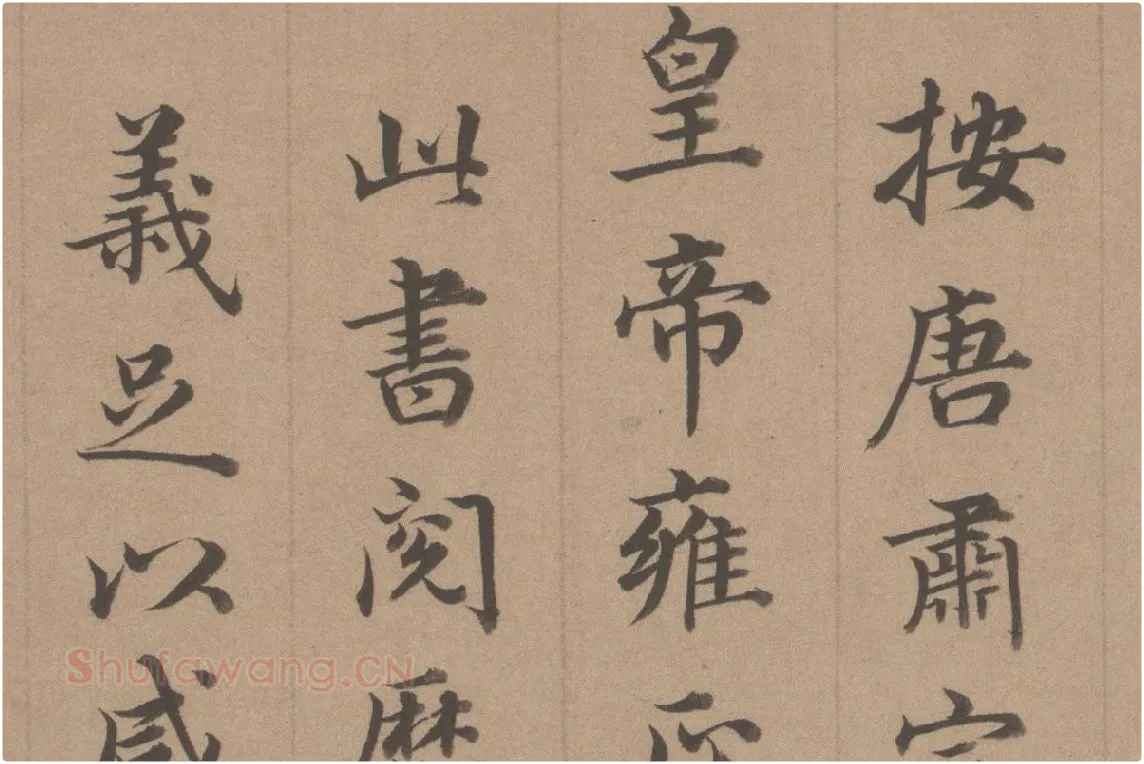 按唐肅宗
皇帝雍
此書閱歷
義足以感
Shufawang.CN